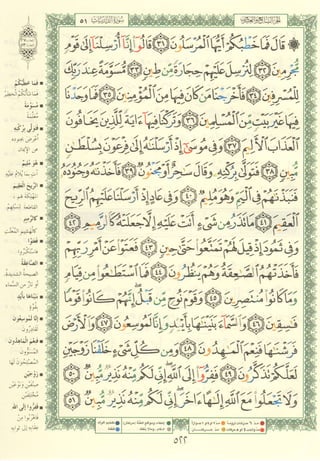 الجزء السابع والعشرون
سورة الذاريات ٥١
قَالَ فَمَا خَطْبُكُمْ أَيُّهَا الْمُرْسَلُونَ ٣١ قَالُوا إِنَّا أُرْسِلْنَا إِلَى قَوْمٍ
مُّجْرِمِينَ ٣٢ لِنُرْسِلَ عَلَيْهِمْ حِجَارَةً مِّن طِينٍ ٣٣ مُّسَوَّمَةً عِندَ رَبِّكَ
لِلْمُسْرِفِينَ ٣٤ فَأَخْرَجْنَا مَن كَانَ فِيهَا مِنَ الْمُؤْمِنِينَ ٣٥ فَمَا وَجَدْنَا
فِيهَا غَيْرَ بَيْتٍ مِّنَ الْمُسْلِمِينَ ٣٦ وَتَرَكْنَا فِيهَا ءَايَةً لِّلَّذِينَ يَخَافُونَ
الْعَذَابَ الْأَلِيمَ ٣٧ وَفِي مُوسَى إِذْ أَرْسَلْنَاهُ إِلَى فِرْعَوْنَ بِسُلْطَانٍ
مُّبِينٍ ٣٨ فَتَوَلَّى بِرُكْنِهِ وَقَالَ سَاحِرٌ أَوْ مَجْنُونٌ ٣٩ فَأَخَذْنَاهُ وَجُنُودَهُ
فَنَبَذْنَاهُمْ فِي الْيَمِّ وَهُوَ مُلِيمٌ ٤٠ وَفِي عَادٍ إِذْ أَرْسَلْنَا عَلَيْهِمُ الرِّيحَ
الْعَقِيمَ ٤١ مَا تَذَرُ مِن شَيْءٍ أَتَتْ عَلَيْهِ إِلَّا جَعَلَتْهُ كَالرَّمِيمِ ٤٢
وَفِي ثَمُودَ إِذْ قِيلَ لَهُمْ تَمَتَّعُوا حَتَّى حِينٍ ٤٣ فَعَتَوْا عَنْ أَمْرِ رَبِّهِمْ
فَأَخَذَتْهُمُ الصَّاعِقَةُ وَهُمْ يَنظُرُونَ ٤٤ فَمَا اسْتَطَاعُوا مِن قِيَامٍ
وَمَا كَانُوا مُنتَصِرِينَ ٤٥ وَقَوْمَ نُوحٍ مِّن قَبْلُ إِنَّهُمْ كَانُوا قَوْمًا
فَاسِقِينَ ٤٦ وَالسَّمَاءَ بَنَيْنَاهَا بِأَيْيْدٍ وَإِنَّا لَمُوسِعُونَ ٤٧ وَالْأَرْضَ
فَرَشْنَاهَا فَنِعْمَ الْمَاهِدُونَ ٤٨ وَمِن كُلِّ شَيْءٍ خَلَقْنَا زَوْجَيْنِ
لَعَلَّكُمْ تَذَكَّرُونَ ٤٩ فَفِرُّوا إِلَى اللَّهِ إِنِّي لَكُم مِّنْهُ نَذِيرٌ مُّبِينٌ ٥٠
وَلَا تَجْعَلُوا مَعَ اللَّهِ إِلَهًا ءَاخَرَ إِنِّي لَكُم مِّنْهُ نَذِيرٌ مُّبِينٌ ٥١
٥٢٢
فما خطبكم
مسومة
فتولى بركنه
هو مليم
الريح العقيم
كالرميم
فعتوا
الصاعقة
بنيناها بأييد
إنا لموسعون
فنعم الماهدون
زوجين
ففروا إلى الله